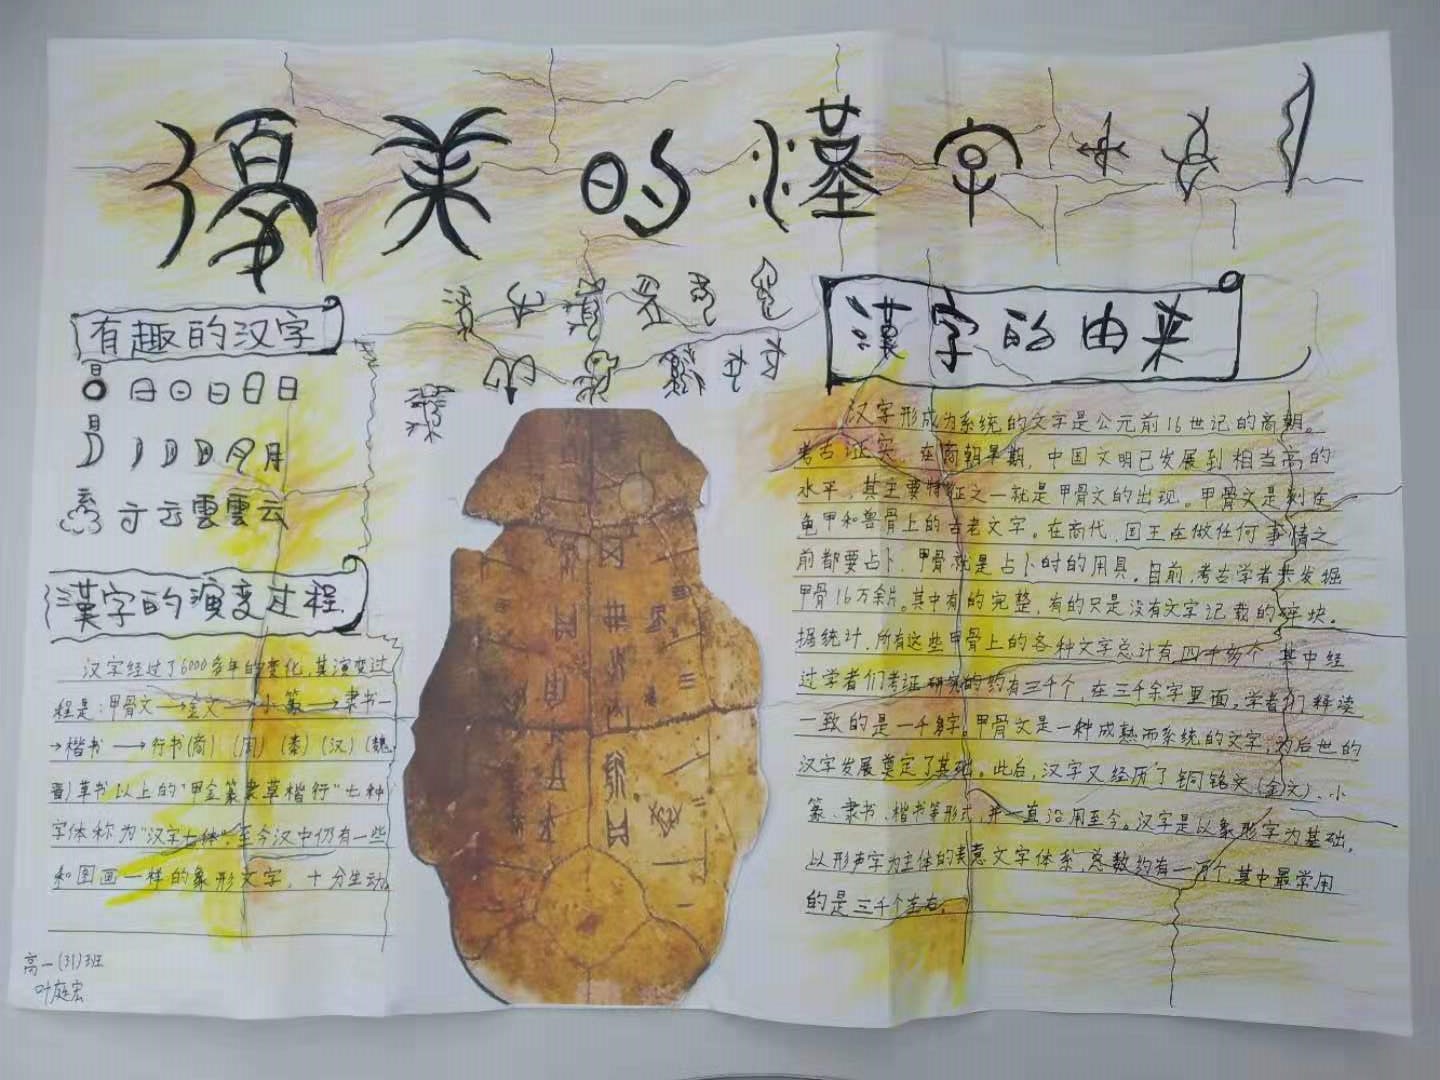 優美的漢字
有趣的汉字
日 日日日日日
月 月月
云 云雲雲云
漢字的演变过程
汉字经过了6000多年的变化,其演变过
程是:甲骨文→金文→小篆→隶书
→楷书→行书(商)(周)(秦)(汉)(魏
晋)草书以上的"甲金篆隶草楷行"七种
字体称为"汉字七体"。至今汉中仍有一些
和图画一样的象形文字,十分生动
高一(31)班
叶庭宏
漢字的由来
汉字形成为系统的文字是公元前16世记的商朝。
考古证实,在商朝早期,中国文明已发展到相当高的
水平,其主要特征之一就是甲骨文的出现。甲骨文是刻在
龟甲和兽骨上的古老文字。在商代,国王在做任何事情之
前都要占卜,甲骨就是占卜时的用具。目前,考古学者共发掘
甲骨16万余片。其中有的完整,有的只是没有文字记载的碎块。
据统计,所有这些甲骨上的各种文字总计有四千多个,其中经
过学者们考证研究的约有三千个,在三千余字里面,学者们释读
一致的是一千多字。甲骨文是一种成熟而系统的文字,为后世的
汉字发展奠定了基础。此后,汉字又经历了铜铭文(金文)、小
篆、隶书、楷书等形式,并一直沿用至今。汉字是以象形字为基础,
以形声字为主体的表意文字体系,总数约有一万个,其中最常用
的是三千个左右。